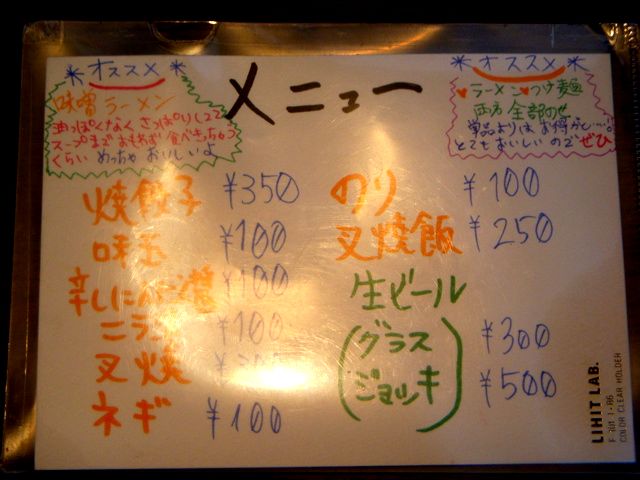 メニュー
*オススメ*
味噌ラーメン
油っぽくなく さっぱりしてて
スープまで おもわず 食べきっちゃう
くらい めっちゃ おいしいよ
*オススメ*
♥ラーメン♥つけ麺
両方 全部のせ
単品よりは お得かし…
とても おいしい ので ぜひ
焼餃子 ¥350
味玉 ¥100
辛し ¥100
ニラ ¥100
叉焼
ネギ ¥100
のり ¥100
叉焼飯 ¥250
生ビール
(グラス ¥300
ジョッキ) ¥500
LIHIT LAB.
COLOR CLEAR HOLDER